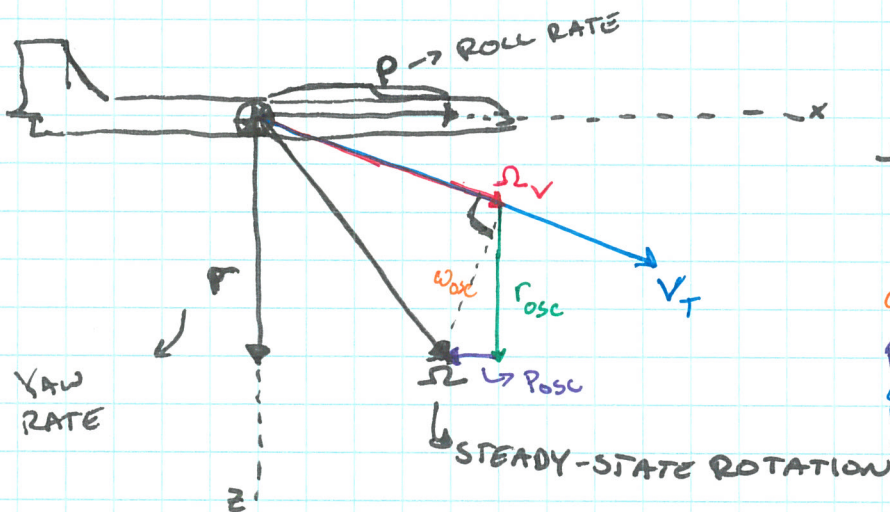 P → ROLL RATE
x
Ω_V
r
ω_osc
r_osc
V_T
YAW
RATE
Ω
↳ P_osc
STEADY-STATE ROTATION
z